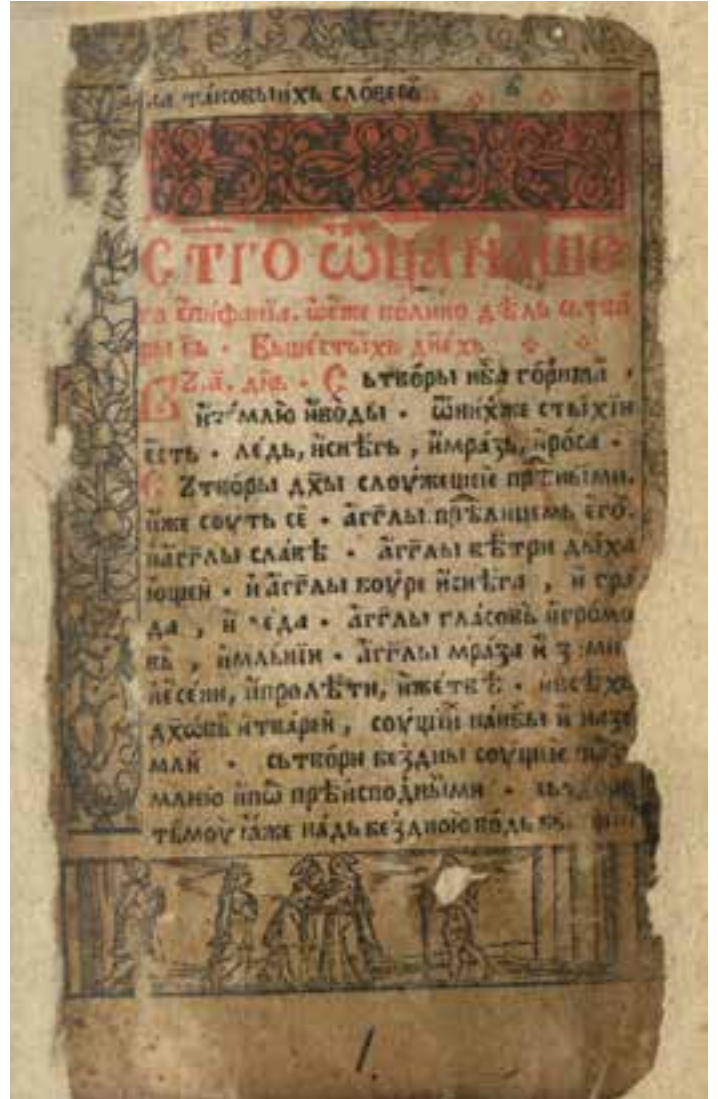 таковыихъ словесъ
СТ҃ГО Ѿц҃а НАШЕ
го є҆пифанїа. ѡ҆ єже колико дѣль сътво
ры бь · Въшестыхъ днехъ
Въ.а. дн҃ь · Сътворы нб҃а горнаа ·
и҆ землю и҆ воды · ѿнихже стыхїи
єсть · ледь, и҆снѣгь, и҆мразь, и҆роса ·
Сътворы дх҃ы слоужещеїе
и҆же соуть се · а҆гг҃лы прѣлицемь єго.
и҆ а҆гг҃лы славѣ · а҆гг҃лы вѣтри дыха
ющеи · и҆ а҆гг҃лы боурі и҆снѣга, и҆ гра
да, и҆ леда · а҆гг҃лы гласовь и҆громо
вь, и҆мльнїи · а҆гг҃лы мраза и҆ зими
и҆єсени, и҆пролѣти, и҆жетвѣ · и҆всѣхь
дх҃ѡвь и҆тварей, соущїй нанб҃ы и҆ назе
мли · сьтвори бездны соущїе
млею и҆пѡ прѣисподными ·
тьмоу ꙗже надь бездною
1